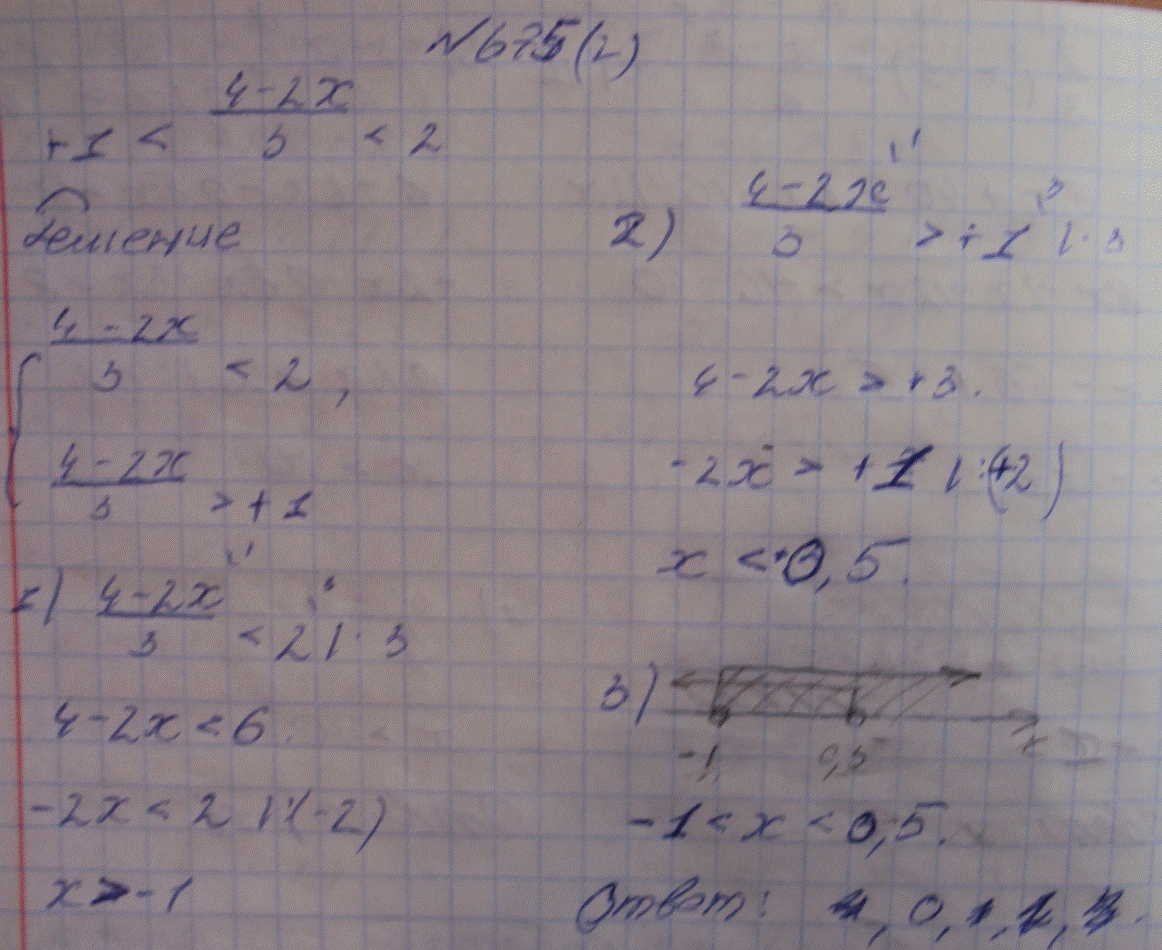 №675(2)
+1 < (4-2x)/3 < 2
Решение
{ (4-2x)/3 < 2,
(4-2x)/3 > +1
1) (4-2x)/3 < 2 | · 3
4-2x < 6
-2x < 2 | :(-2)
x > -1
2) (4-2x)/3 > +1 | · 3
4-2x > +3.
-2x > +1 | :(+2)
x < 0,5.
3)
-1 0,5 x
-1 < x < 0,5.
Ответ: 0,